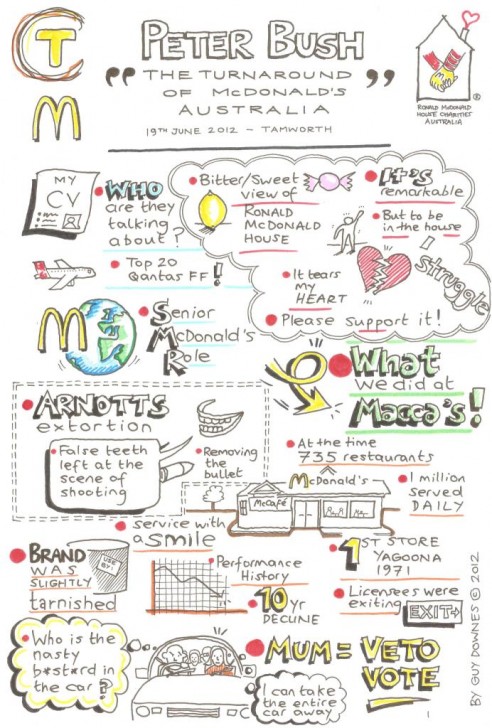 CT
M
PETER BUSH
"THE TURNAROUND
OF McDONALD'S
AUSTRALIA"
19TH JUNE 2012 - TAMWORTH
RONALD McDONALD
HOUSE CHARITIES
AUSTRALIA
®
MY
CV
WHO
are they
talking
about?
Top 20
Qantas FF!
M
Senior
McDonald's
Role
Bitter/Sweet
view of
RONALD
MCDONALD
HOUSE
It's
remarkable
But to be
in the house
I
struggle
It tears
my
HEART
Please support it!
What
we did at
Macca's!
ARNOTTS
extortion
False teeth
left at the
scene of
shooting
Removing
the
bullet
At the time
735 restaurants
McDonald's
McCafé
1 million
served
DAILY
service with
a smile
BRAND
WAS
SLIGHTLY
tarnished
USE
BY!
Performance
History
10 yr
DECLINE
1ST STORE
YAGOONA
1971
Licensees were
exiting
EXIT
Who is the
nasty
b*st*rd in
the car?
MUM = VETO
VOTE
I can take
the entire
car away
BY GUY DOWNES © 2012